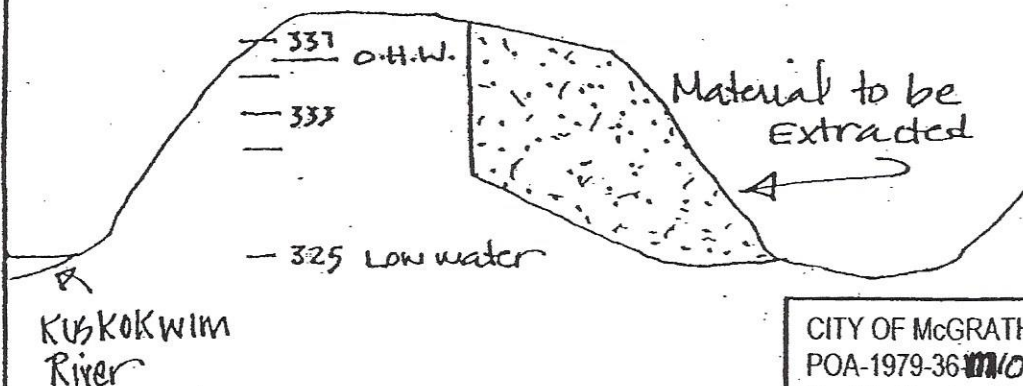 337
O.H.W.
333
Material to be
Extracted
325 Low water
KUSKOKWIM
River
CITY OF McGRATH
POA-1979-36